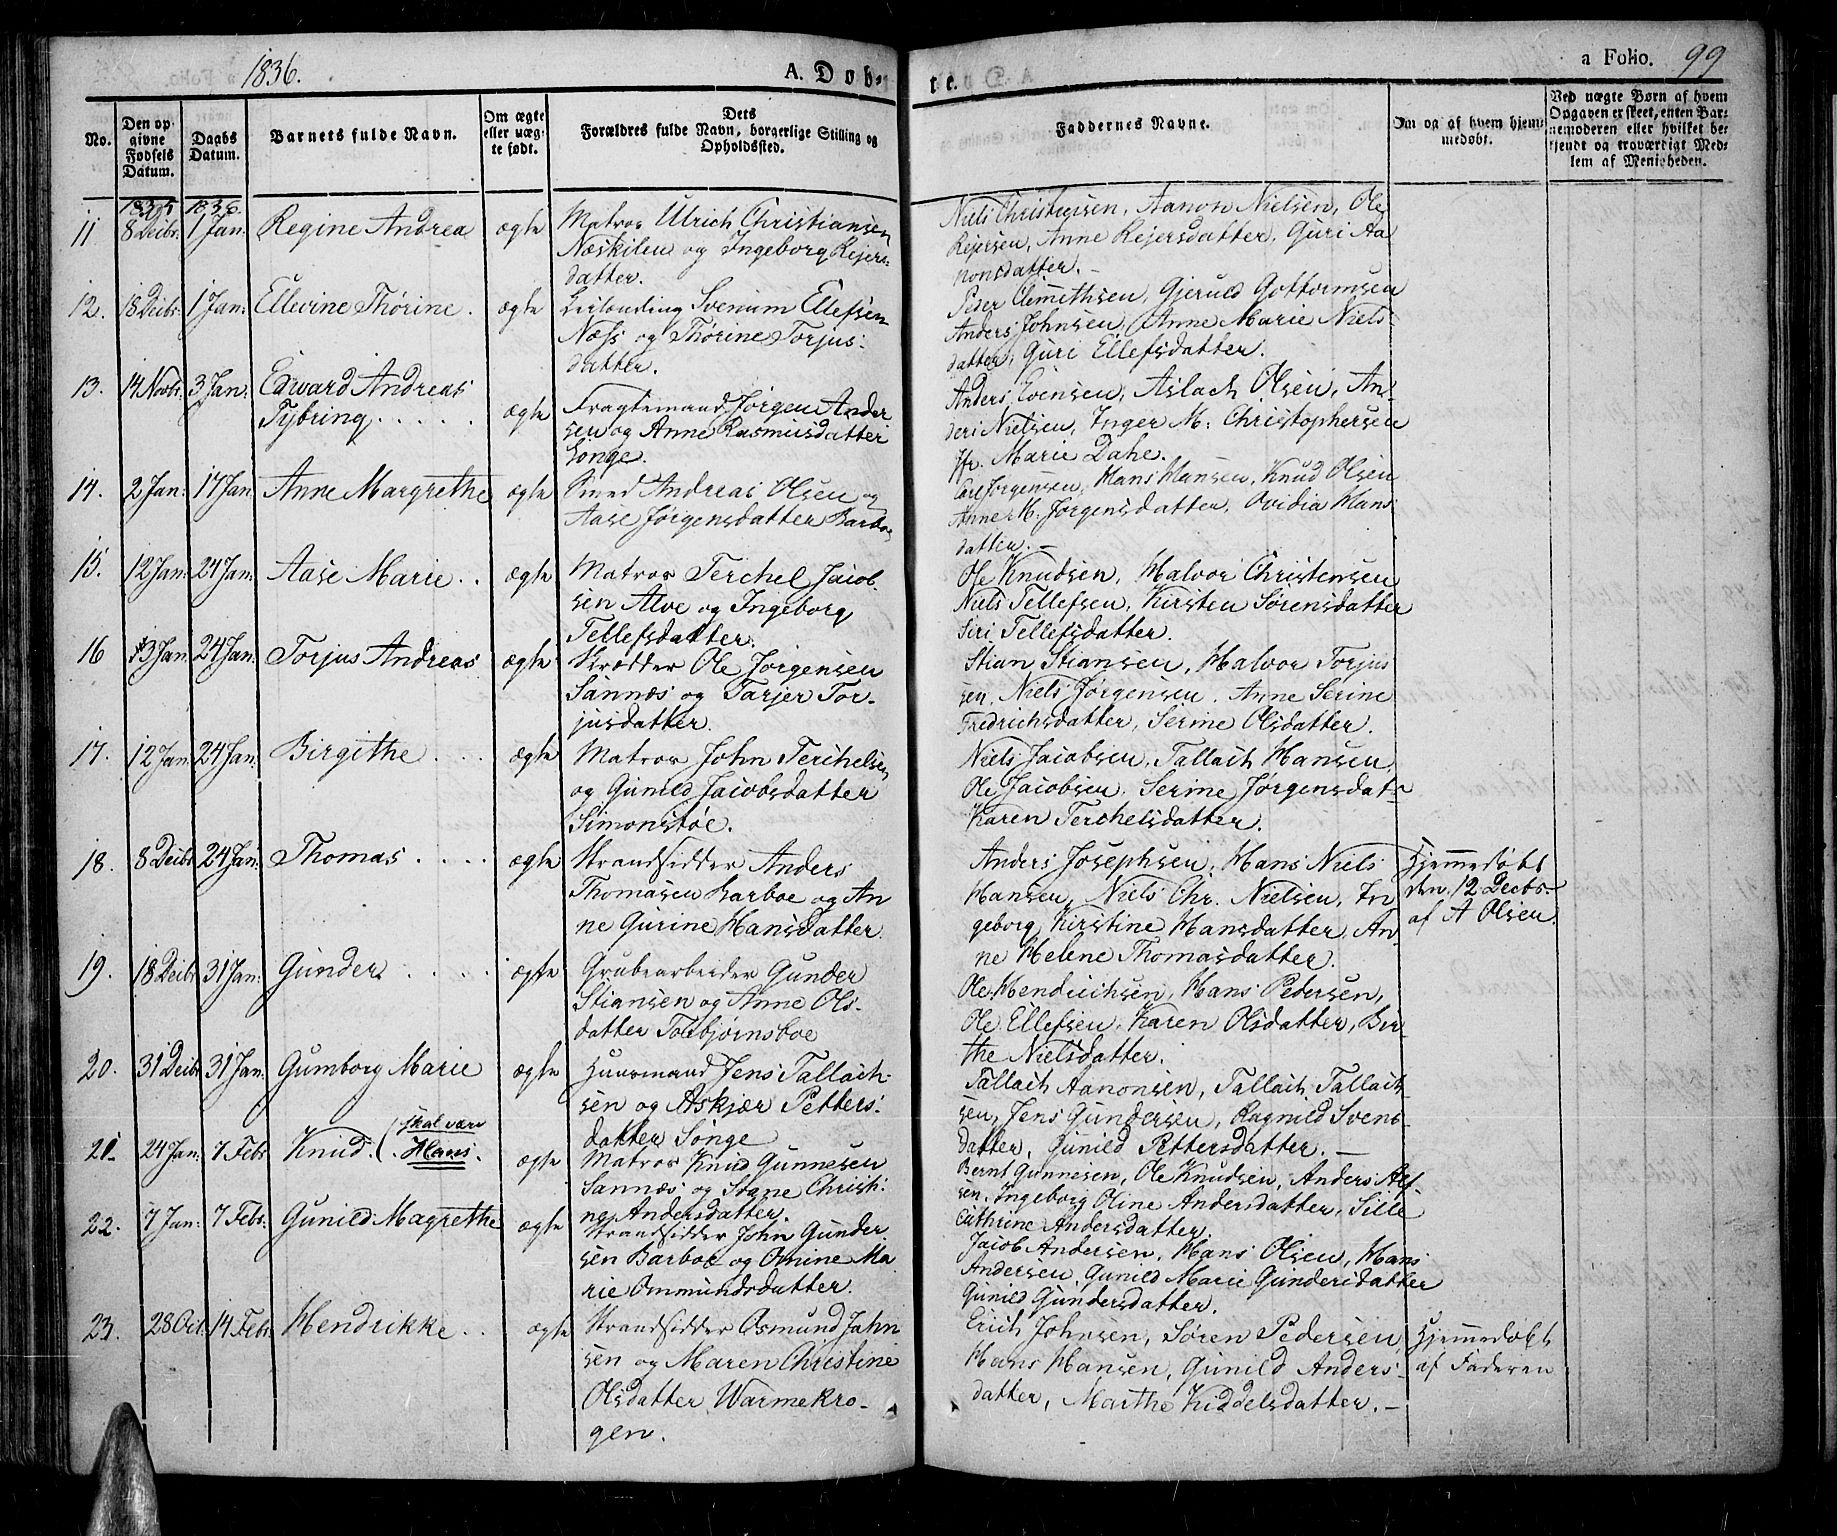 1836.
A. Døb-
te.
a Folio. 99
No.
Den op
givne
Fødsels
Datum.
Daabs
Datum.
Barnets fulde Navn.
Om ægte
eller uæg-
te født.
Dets
Forældres fulde Navn, borgerlige Stilling og
Opholdssted.
Faddernes Navne.
Om og af hvem hjem-
medøbt.
Ved uægte Børn af hvem
Opgaven er skeet, enten Bar-
nemoderen eller hvilket be-
kjendt og troværdigt Med-
lem af Menigheden.
1835 1836
11 8 Decbr. 1 Jan: Regine Andrea ægte Matros Ulrich Christiansen
Næskilen og Ingeborg Rejers-
datter.
Niels Christensen, Aanon Nielsen, Ole
Rejersen, Anne Rejersdatter, Guri Aa
nonsdatter. -
12. 18 Decbr. 1 Jan: Ellevine Thorine. ægte Svenum Ellefsen
Næss og Thorine Torjus-
datter.
Peder Clemethsen, Gjeruld Gottormsen
Anders Johnsen, Anne Marie Niels-
datter, Guri Ellefsdatter.
13. 14 Novbr. 3 Jan: Edward Andreas
Tybring. . . . . . ægte Fragtemand Jørgen Ander
sen og Anne Rasmusdatter
Songe.
Anders Evensen, Aslach Olsen, An-
ders Nielsen, Inger M: Christophersen
Jfr. Marie Dahe.
14. 2 Jan: 17 Jan: Anne Margrethe ægte Smed Andreas Olsen og
Aase Jørgensdatter Barboe
Carl Jørgensen, Hans Hansen, Knud Olsen
Anne M. Jørgensdatter, Ovidia Hans
datter. -
15. 12 Jan: 24 Jan: Aase Marie . . ægte Matros Terchel Jacob
sen Alve og Ingeborg
Tellefsdatter.
Ole Knudsen, Halvor Christensen
Niels Tellefsen, Kirsten Sørensdatter
Siri Tellefsdatter.
16 13 Jan: 24 Jan: Torjus Andreas ægte Skrædder Ole Jørgensen
Sannæs og Tarjer Tor-
jusdatter.
Stian Stiansen, Halvor Torjus
sen, Niels Jørgensen. Anne Serine
Fredrichsdatter, Serine Olsdatter.
17. 12 Jan: 24 Jan: Birgithe . . . . ægte Matros John Terchelsen
og Gunild Jacobsdatter
Simonstøe.
Niels Jacobsen, Tallach Hansen
Ole Jacobsen. Serine Jørgensdatr
Karen Terchelsdatter.
18. 8 Decbr 24 Jan: Thomas . . . . . ægte Strandsidder Anders
Thomasen Barboe og An
ne Gurine Hansdatter
Anders Josephsen, Hans Niels
Hansen, Niels Chr. Nielsen, In
geborg Kirstine Hansdatter, An
ne Helene Thomasdatter.
Hjemmedøbt
den 12 Decbr.
af A Olsen.
19. 18 Decbr 31 Jan: Gunder . . . . . ægte Grubearbeider Gunder
Stiansen og Anne Ols-
datter Torbjørnsboe
Ole Hendrichsen, Hans Pedersen,
Ole Ellefsen, Karen Olsdatter, Bir-
the Nielsdatter.
20. 31 Decbr 31 Jan: Gumborg Marie ægte Huusmand Jens Tallach-
sen og Askjær Petters-
datter Songe
Tallach Aanonsen, Tallach Tallach
sen, Jens Gundersen, Ragnild Svens-
datter, Gunild Pettersdatter. -
21. 24 Jan: 7 Febr. Knud. (skal være
Hans. ægte Matros Knud Gunnesen
Sannæs og Stane Christi-
ne Andersdatter.
Bernt Gunnesen, Ole Knudsen, Anders Alf-
sen. Ingeborg Oline Andersdatter, Sille
Cathrine Andersdatter.
22. 7 Jan: 7 Febr. Gunild Magrethe ægte Strandsidder John Gunder-
sen Barboe og Omine Ma
rie Ommundsdatter.
Jacob Andersen, Hans Olsen, Hans
Andersen, Gunild Marie Gundersdatter
Gunild Gundersdatter.
23. 28 Oct. 14 Febr. Hendrikke . . ægte Strandsidder Osmund Jahn
sen og Maren Christine
Olsdatter Warmekro-
gen.
Erich Johnsen, Søren Pedersen,
Hans Hansen, Gunild Anders-
datter, Marthe Kiddelsdatter. -
Hjemmedøbt
af Faderen